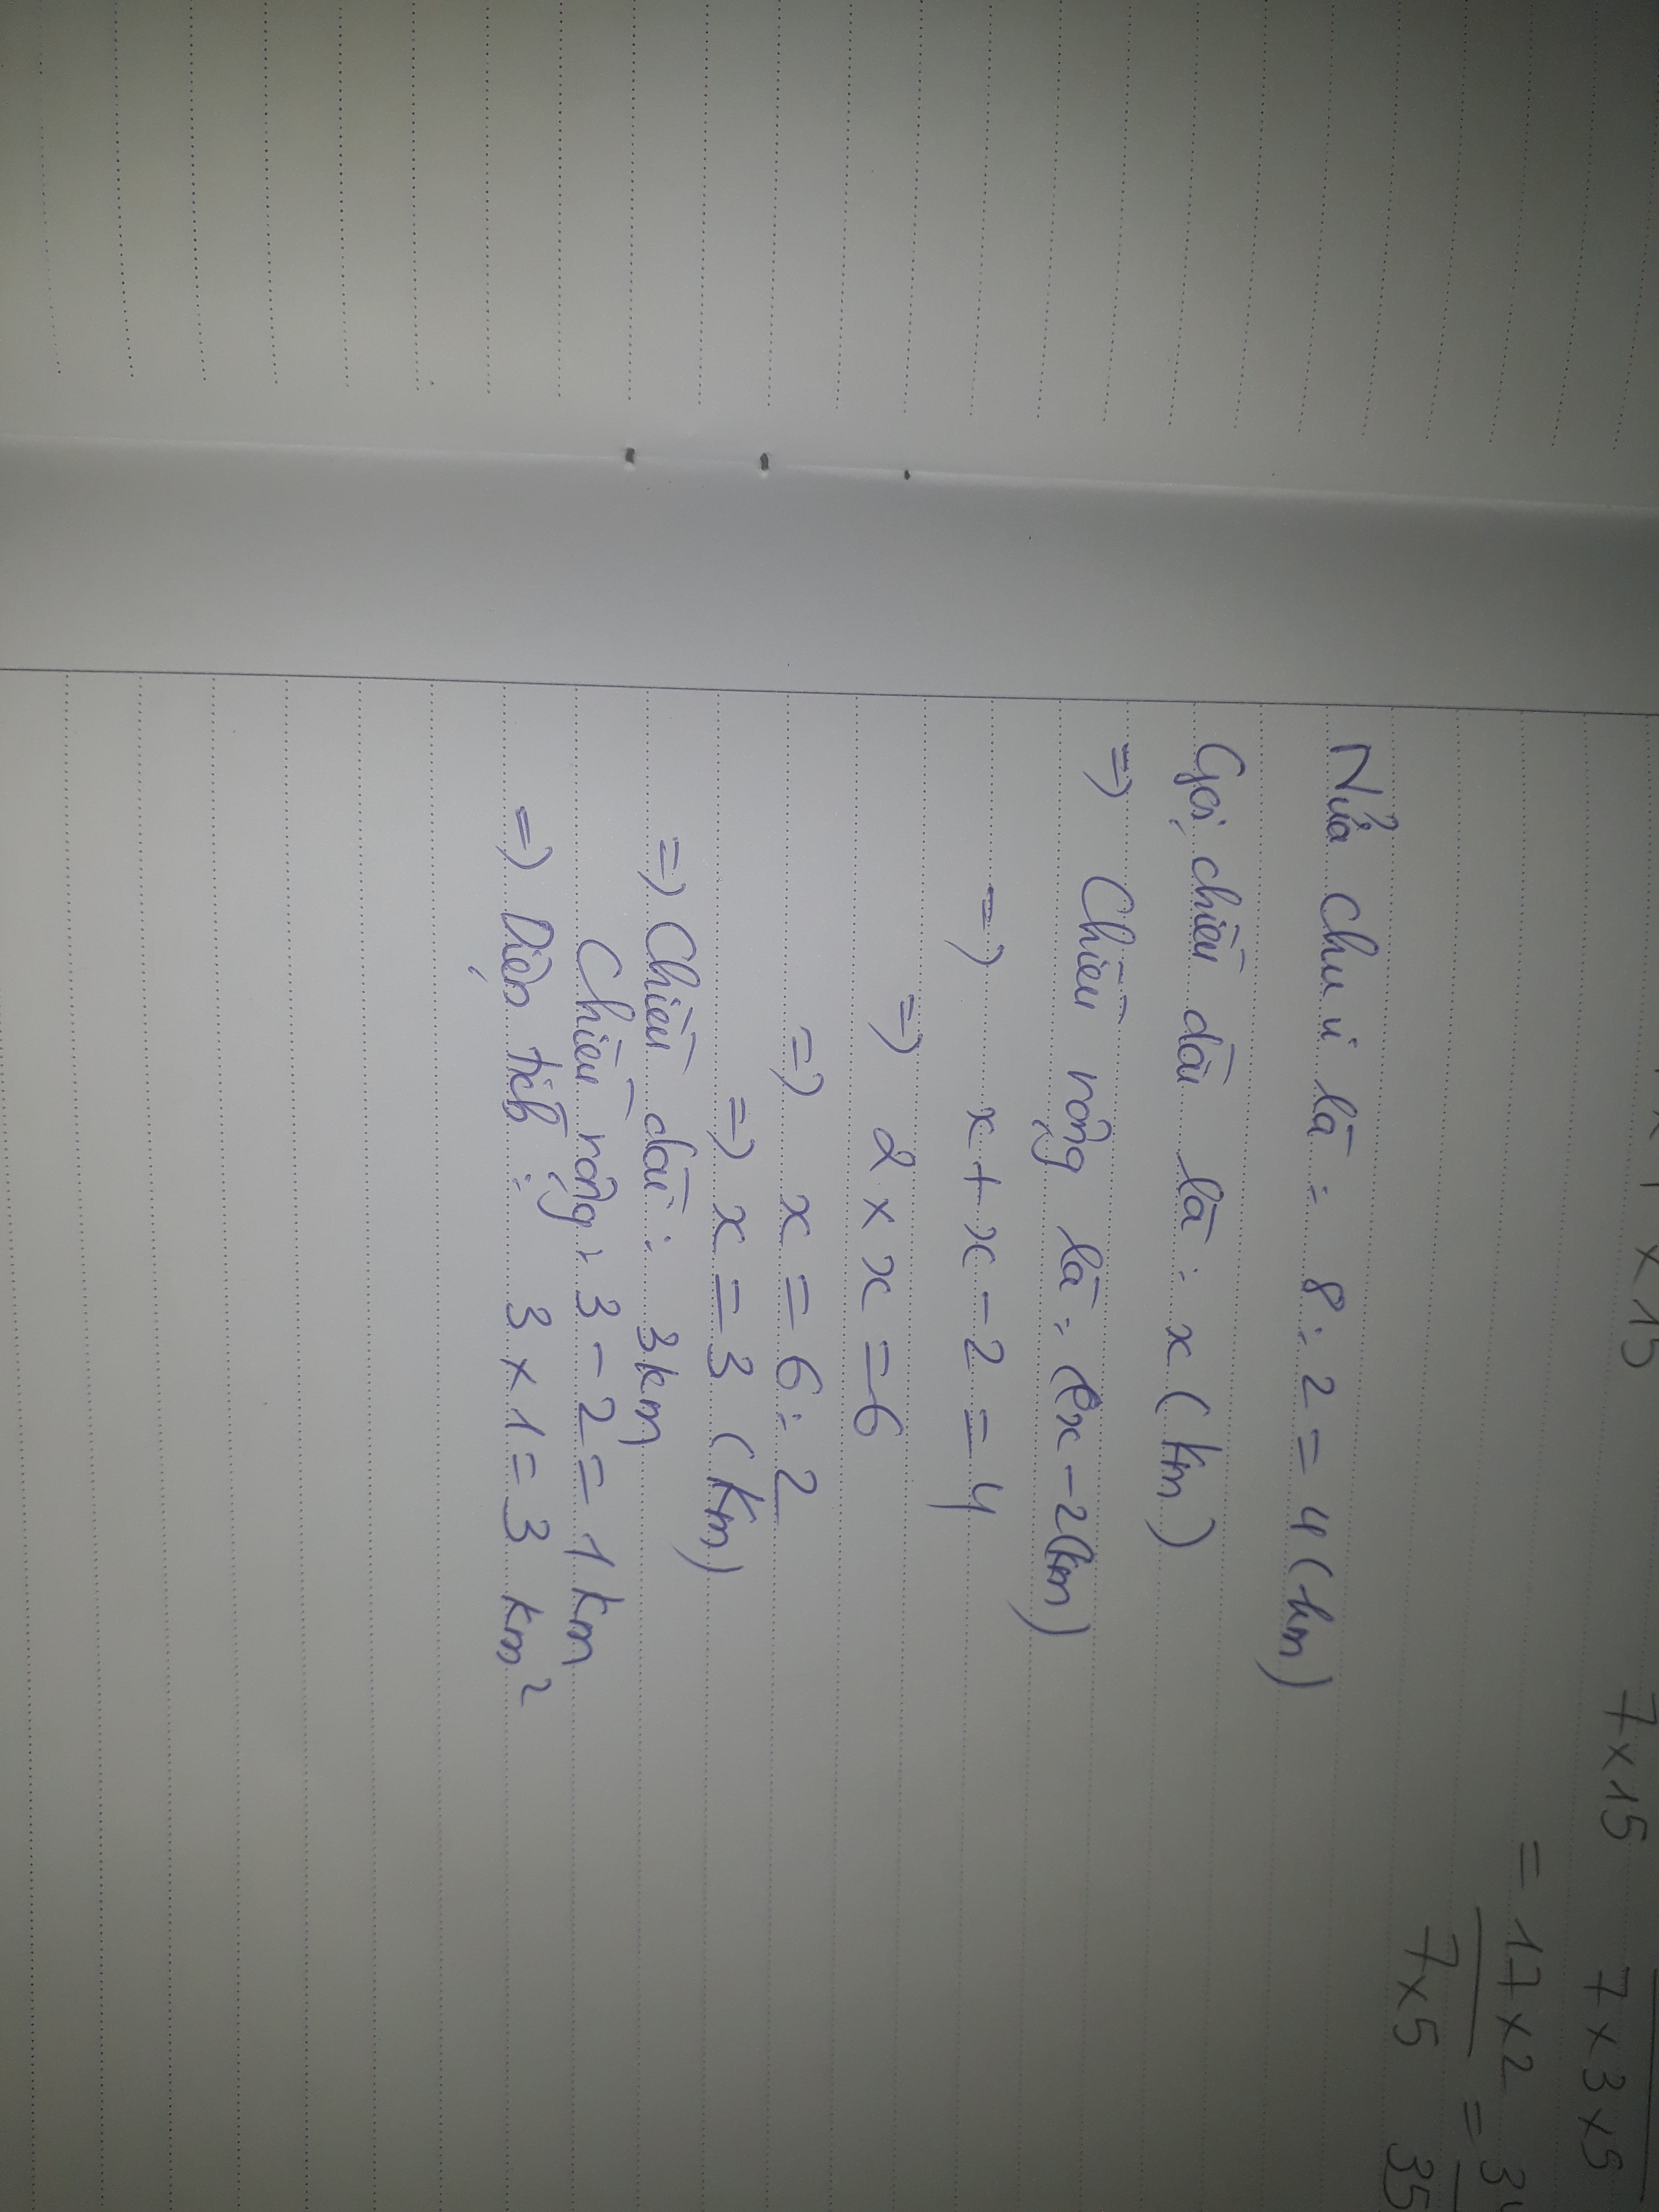 x 15
7 x 15
7 x 3 x 5
= 17 x 2 =
7 x 5 35
Nửa chu vi là : 8 : 2 = 4 (km)
Gọi chiều dài là : x (km)
=> Chiều rộng là : x - 2 (km)
=> x + x - 2 = 4
=> 2 x x = 6
=> x = 6 : 2
=> x = 3 (km)
=> Chiều dài : 3 km
Chiều rộng : 3 - 2 = 1 km
=> Diện tích : 3 x 1 = 3 km²